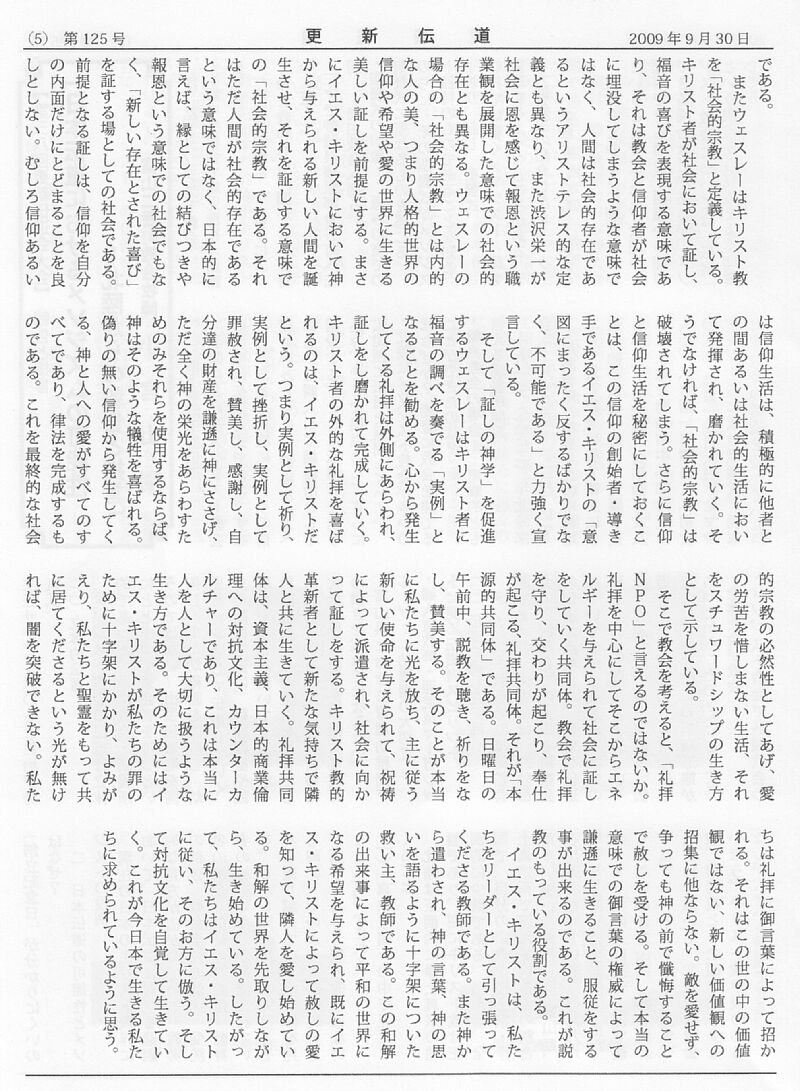 (5) 第125号
更新伝道
2009年9月30日
である。
　またウェスレーはキリスト教
を「社会的宗教」と定義している。
キリスト者が社会において証し、
福音の喜びを表現する意味であ
り、それは教会と信仰者が社会
に埋没してしまうような意味で
はなく、人間は社会的存在であ
るというアリストテレス的な定
義とも異なり、また渋沢栄一が
社会に恩を感じて報恩という職
業観を展開した意味での社会的
存在とも異なる。ウェスレーの
場合の「社会的宗教」とは内的
な人の美、つまり人格的世界の
信仰や希望や愛の世界に生きる
美しい証しを前提にする。まさ
にイエス・キリストにおいて神
から与えられる新しい人間を誕
生させ、それを証しする意味で
の「社会的宗教」である。それ
はただ人間が社会的存在である
という意味ではなく、日本的に
言えば、縁としての結びつきや
報恩という意味での社会でもな
く、「新しい存在とされた喜び」
を証する場としての社会である。
前提となる証しは、信仰を自分
の内面だけにとどまることを良
しとしない。むしろ信仰あるい
は信仰生活は、積極的に他者と
の間あるいは社会的生活におい
て発揮され、磨かれていく。そ
うでなければ、「社会的宗教」は
破壊されてしまう。さらに信仰
と信仰生活を秘密にしておくこ
とは、この信仰の創始者・導き
手であるイエス・キリストの「意
図にまったく反するばかりでな
く、不可能である」と力強く宣
言している。
　そして「証しの神学」を促進
するウェスレーはキリスト者に
福音の調べを奏でる「実例」と
なることを勧める。心から発生
してくる礼拝は外側にあらわれ、
証しをし磨かれて完成していく。
キリスト者の外的な礼拝を喜ば
れるのは、イエス・キリストだ
という。つまり実例として祈り、
実例として挫折し、実例として
罪赦され、賛美し、感謝し、自
分達の財産を謙遜に神にささげ、
ただ全く神の栄光をあらわすた
めのみそれらを使用するならば、
神はそのような犠牲を喜ばれる。
偽りの無い信仰から発生してく
る、神と人への愛がすべてのす
べてであり、律法を完成するも
のである。これを最終的な社会
的宗教の必然性としてあげ、愛
の労苦を惜しまない生活、それ
をスチュワードシップの生き方
として示している。
　そこで教会を考えると、「礼拝
NPO」と言えるのではないか。
礼拝を中心にしてそこからエネ
ルギーを与えられて社会に証し
をしていく共同体。教会で礼拝
を守り、交わりが起こり、奉仕
が起こる、礼拝共同体。それが「本
源的共同体」である。日曜日の
午前中、説教を聴き、祈りをな
し、賛美する。そのことが本当
に私たちに光を放ち、主に従う
新しい使命を与えられて、祝祷
によって派遣され、社会に向か
って証しをする。キリスト教的
革新者として新たな気持ちで隣
人と共に生きていく。礼拝共同
体は、資本主義、日本的商業倫
理への対抗文化、カウンターカ
ルチャーであり、これは本当に
人を人として大切に扱うような
生き方である。そのためにはイ
エス・キリストが私たちの罪の
ために十字架にかかり、よみが
えり、私たちと聖霊をもって共
に居てくださるという光が無け
れば、闇を突破できない。私た
ちは礼拝に御言葉によって招か
れる。それはこの世の中の価値
観ではない、新しい価値観への
招集に他ならない。敵を愛せず、
争っても神の前で懺悔すること
で赦しを受ける。そして本当の
意味での御言葉の権威によって
謙遜に生きること、服従をする
事が出来るのである。これが説
教のもっている役割である。
　イエス・キリストは、私た
ちをリーダーとして引っ張って
くださる教師である。また神か
ら遣わされ、神の言葉、神の思
いを語るように十字架についた
救い主、教師である。この和解
の出来事によって平和の世界に
なる希望を与えられ、既にイエ
ス・キリストによって赦しの愛
を知って、隣人を愛し始めてい
る。和解の世界を先取りしなが
ら、生き始めている。したがっ
て、私たちはイエス・キリスト
に従い、そのお方に倣う。そし
て対抗文化を自覚して生きてい
く。これが今日本で生きる私た
ちに求められているように思う。